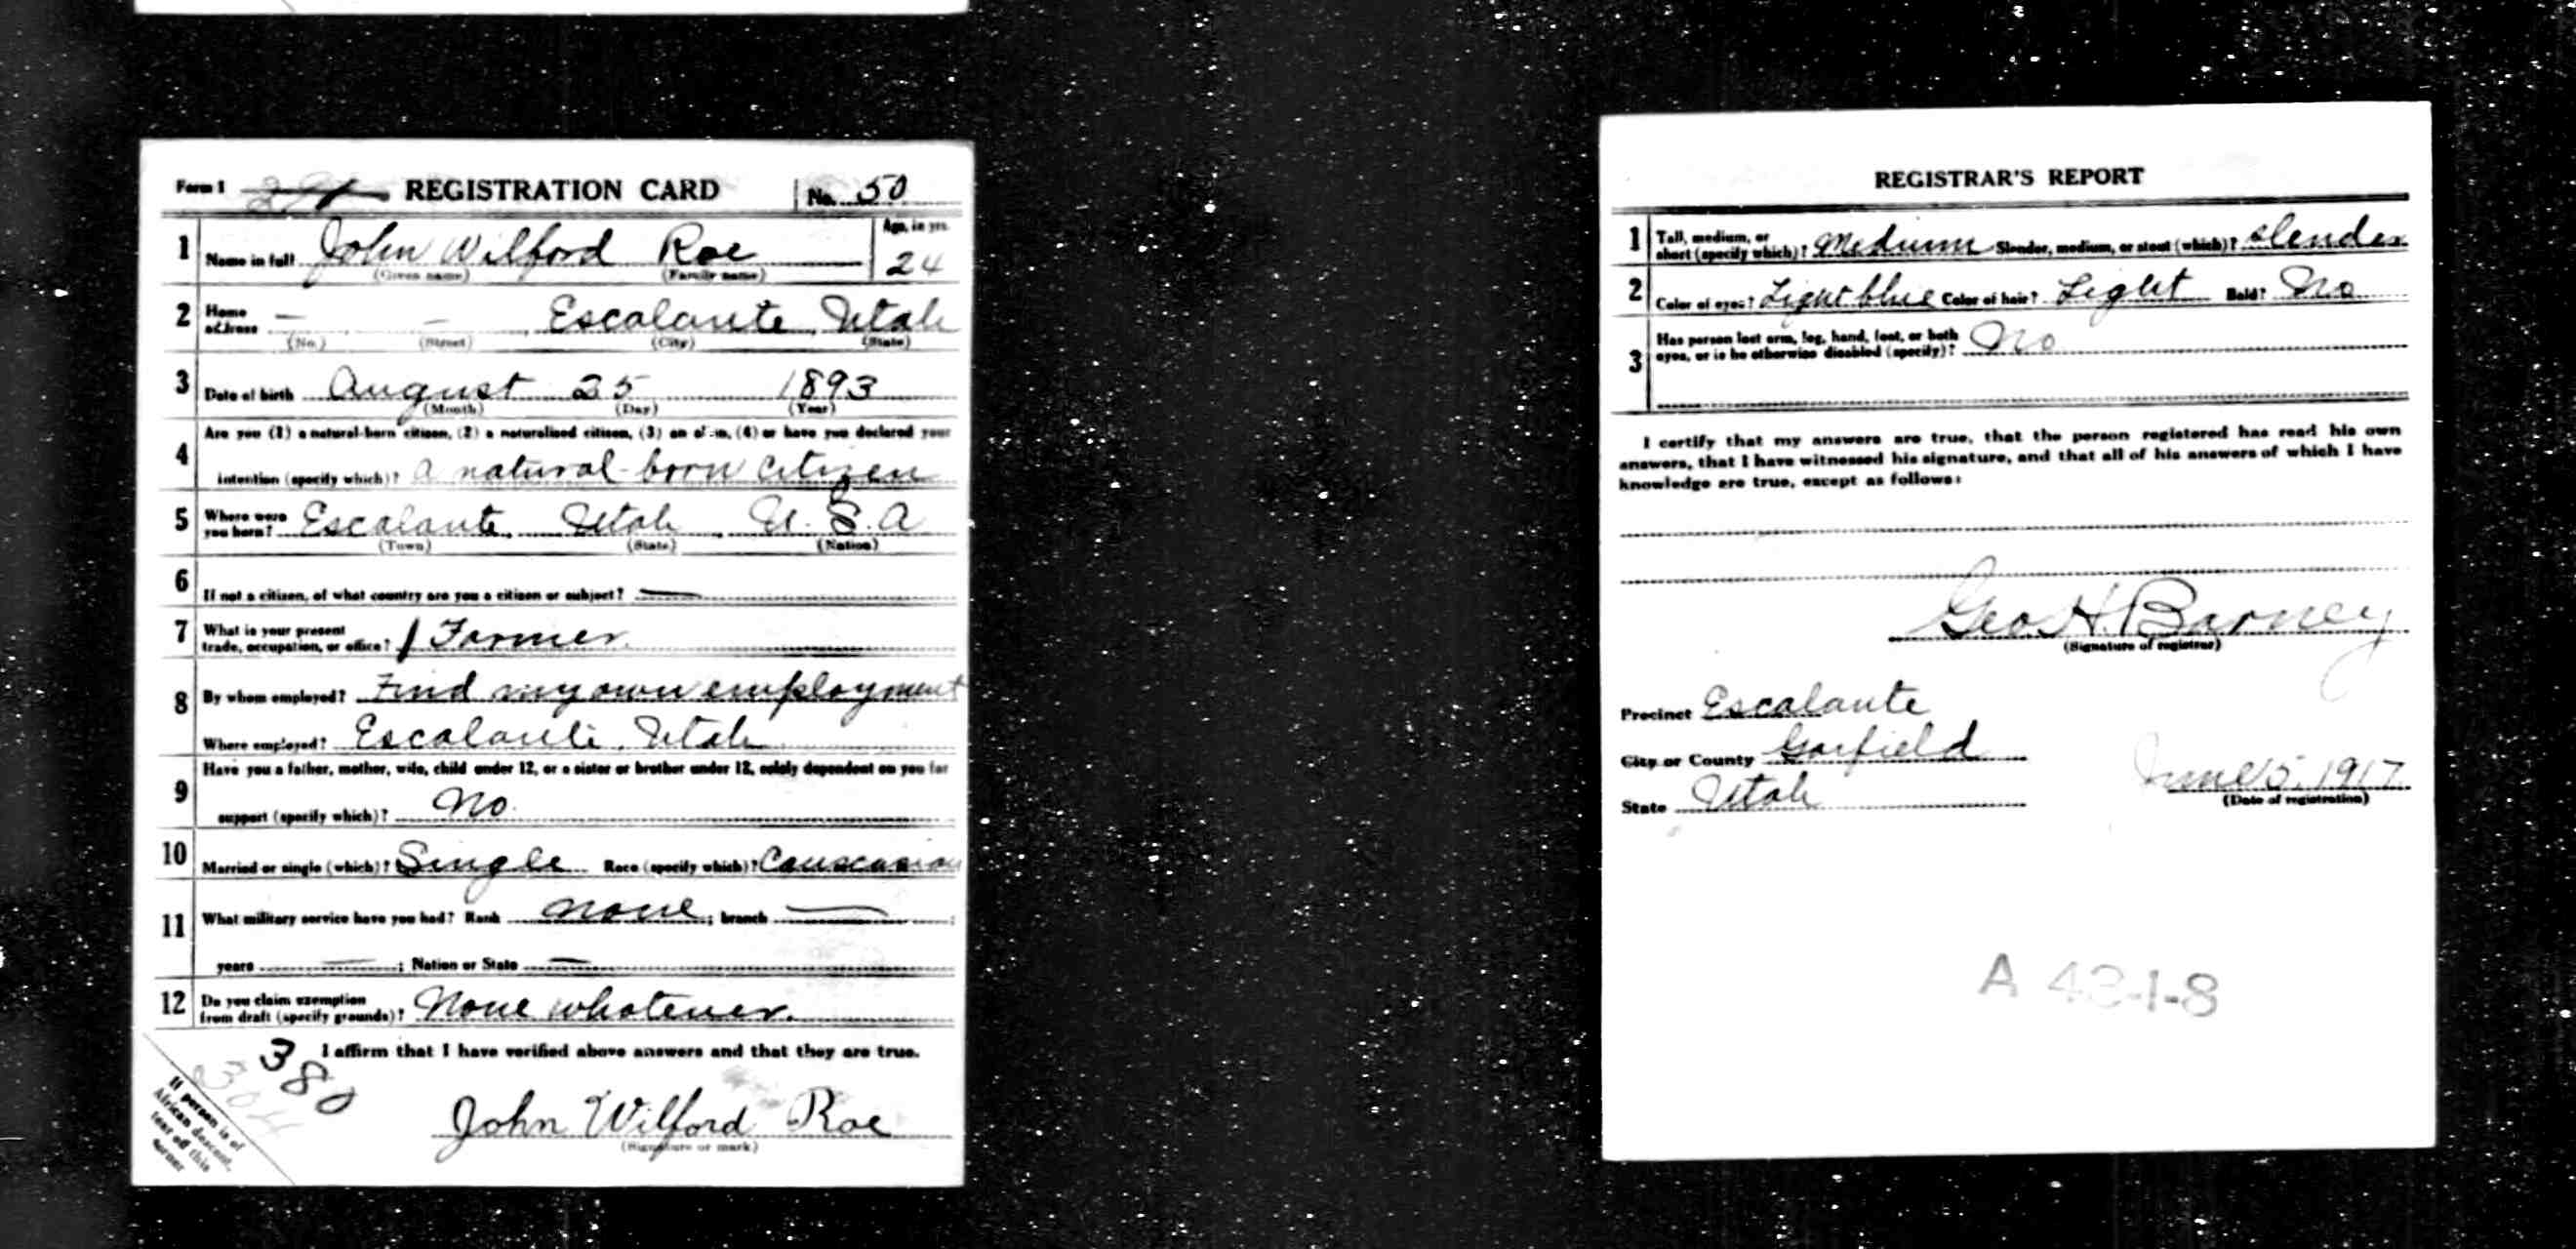 Form 1 REGISTRATION CARD No. 50
1 Name in full John Wilford Roe Age, in yrs. 24
(Given name) (Family name)
2 Home address — — Escalante, Utah
(No.) (Street) (City) (State)
3 Date of birth August 25 1893
(Month) (Day) (Year)
4 Are you (1) a natural-born citizen, (2) a naturalized citizen, (3) an alien, (4) or have you declared your
intention (specify which)? a natural-born citizen
5 Where were you born? Escalante, Utah, U.S.A
(Town) (State) (Nation)
6 If not a citizen, of what country are you a citizen or subject? —
7 What is your present trade, occupation, or office? Farmer
8 By whom employed? Find my own employment
Where employed? Escalante, Utah
9 Have you a father, mother, wife, child under 12, or a sister or brother under 12, solely dependent on you for
support (specify which)? No.
10 Married or single (which)? Single Race (specify which)? Causcasian
11 What military service have you had? Rank none; branch —;
years —; Nation or State —
12 Do you claim exemption from draft (specify grounds)? None whatever.
I affirm that I have verified above answers and that they are true.
38
John Wilford Roe
(Signature or mark)
If person is of
African descent,
tear off this
corner
REGISTRAR'S REPORT
1 Tall, medium, or short (specify which)? Medium Slender, medium, or stout (which)? slender
2 Color of eyes? Light blue Color of hair? Light Bald? No
3 Has person lost arm, leg, hand, foot, or both
eyes, or is he otherwise disabled (specify)? No
I certify that my answers are true, that the person registered has read his own
answers, that I have witnessed his signature, and that all of his answers of which I have
knowledge are true, except as follows:
Geo H. Barney
(Signature of registrar)
Precinct Escalante
City or County Garfield
State Utah
June 5, 1917
(Date of registration)
A 43-1-8